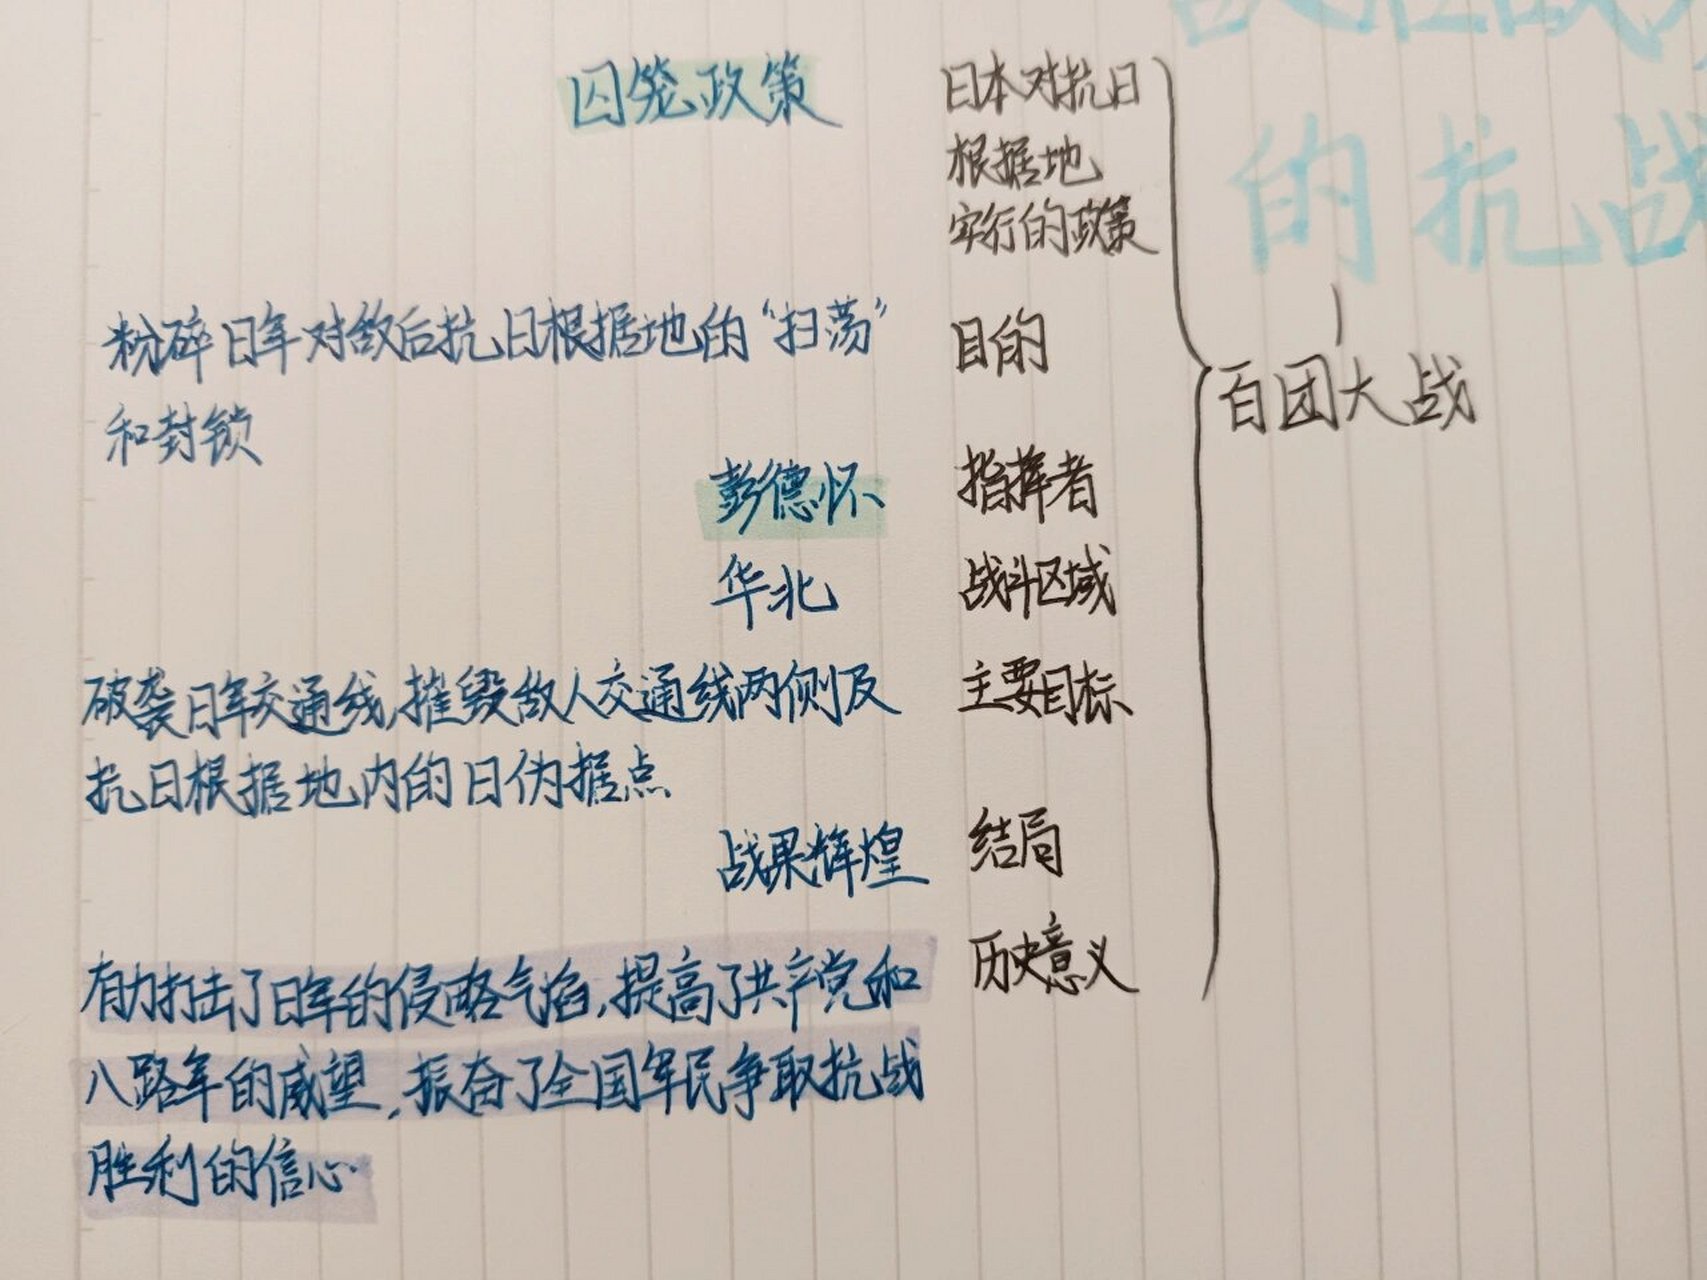 的抗战
囚笼政策 日本对抗日
根据地
实行的政策
粉碎日军对敌后抗日根据地的“扫荡” 目的
和封锁
百团大战
彭德怀 指挥者
华北 战斗区域
破袭日军交通线,摧毁敌人交通线两侧及 主要目标
抗日根据地内的日伪据点
战果辉煌 结局
有力打击了日军的侵略气焰,提高了共产党和 历史意义
八路军的威望,振奋了全国军民争取抗战
胜利的信心